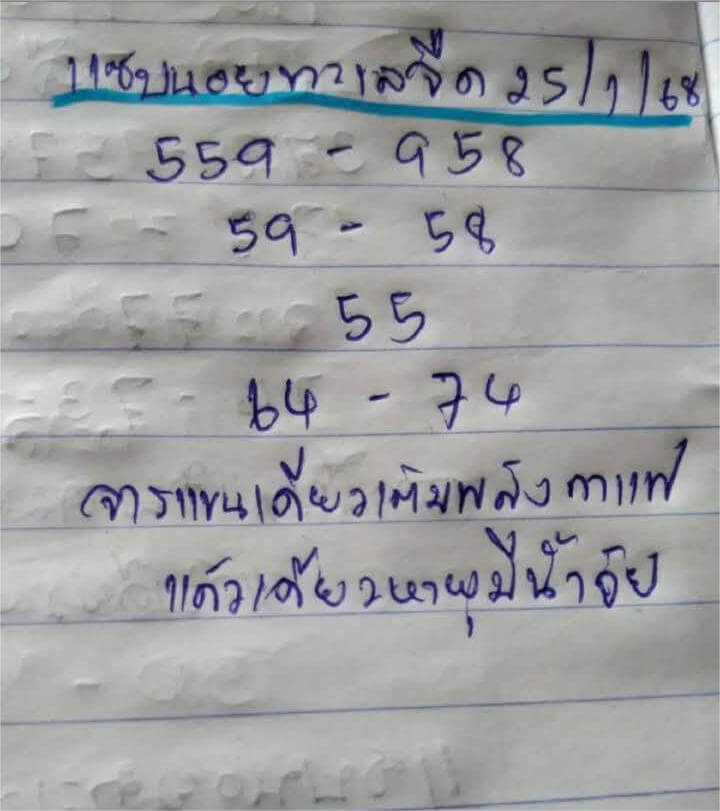 แซบนอยทะเลจืด 25/1/68
559 - 958
59 - 58
55
64 - 74
จารแขนเดียวเติมพลังกาแฟ
แก้วเดียวหายผุมีน้ำจัย